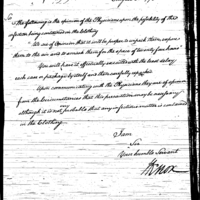 Sir
The following is the opinion of the Physicians upon the possibility of the
infection being contained in the Clothing
"We are of Opinion that it will be proper to unpack them, expose
them to the air and to smoak them for the space of twenty four hours"
You will have it effectually executed with the least delay
each case or package by itself and then carefully repacked
Upon conversing with the Physicians they are of opinion
from the circumstances that this precaution may be unnecessary
although it is not probable that any infectious matter is contained
in the Clothing.
I am
Sir
Your humble Servant
H Knox